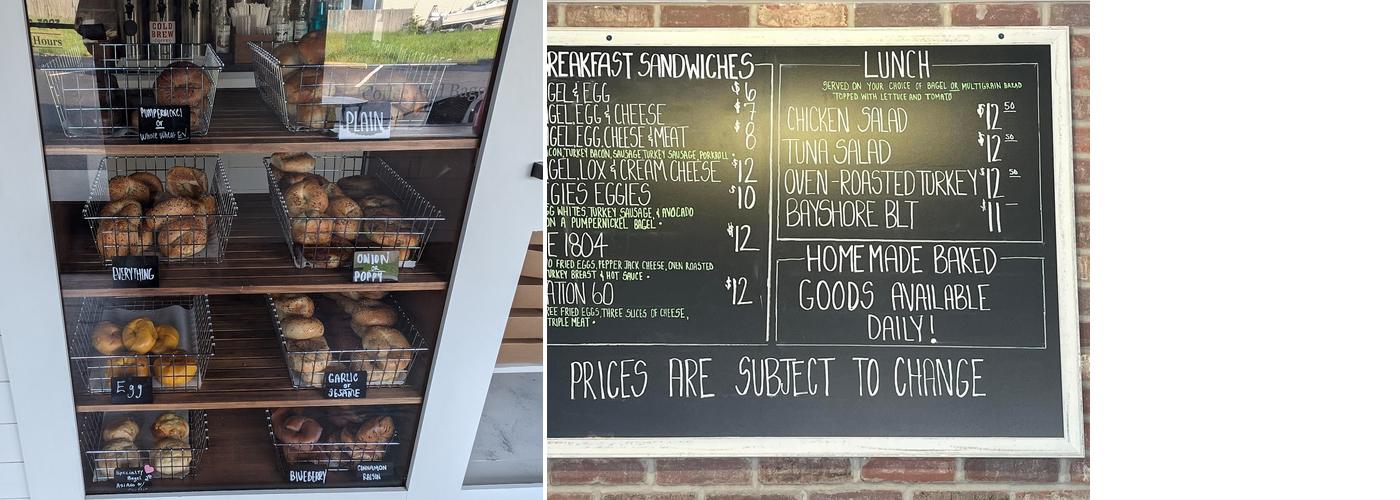 Hours
COLD
BREW
COFFEE
PUMPERNICKEL
or
Whole Wheat EV
PLAIN
EVERYTHING
ONION
OR
POPPY
Egg
GARLIC
or
SESAME
Specialty
Bagel
ASIAGO
BLUEBERRY
CINNAMON
RAISIN
REAKFAST SANDWICHES
GEL & EGG $6
GEL, EGG & CHEESE $7
GEL, EGG, CHEESE & MEAT $8
CON, TURKEY BACON, SAUSAGE, TURKEY SAUSAGE, PORKROLL
GEL, LOX & CREAM CHEESE $12
GIES EGGIES $10
GG WHITES, TURKEY SAUSAGE, & AVOCADO
ON A PUMPERNICKEL BAGEL
E 1804 $12
O FRIED EGGS, PEPPER JACK CHEESE, OVEN ROASTED
URKEY BREAST & HOT SAUCE
ATION 60 $12
REE FRIED EGGS, THREE SLICES OF CHEESE,
TRIPLE MEAT
LUNCH
SERVED ON YOUR CHOICE OF BAGEL OR MULTIGRAIN BREAD
TOPPED WITH LETTUCE AND TOMATO
CHICKEN SALAD $12 50
TUNA SALAD $12 50
OVEN-ROASTED TURKEY $12 50
BAYSHORE BLT $11
HOMEMADE BAKED
GOODS AVAILABLE
DAILY!
PRICES ARE SUBJECT TO CHANGE